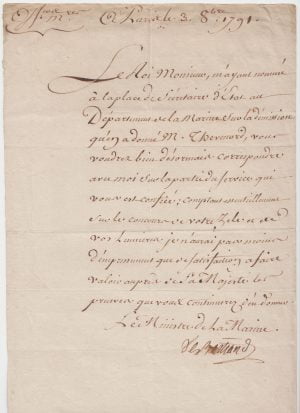 A Paris le 3. 8bre 1791.
Le Roi Monsieur, m'ayant nommé
à la place de Secrétaire d'Etat au
Département de la Marine sur la démission
qu'en a donné M. Thevenard, vous
voudrez bien désormais correspondre
avec moi sur la partie du service qui
vous est confiée; comptant essentiellement
sur le concours de votre zele et de
vos lumieres je n'aurai pas moins
d'empressement que de satisfaction à faire
valoir auprès de Sa Majesté les
preuves que vous continuerez d'en donner.
Le Ministre de la Marine.
De Bertrand